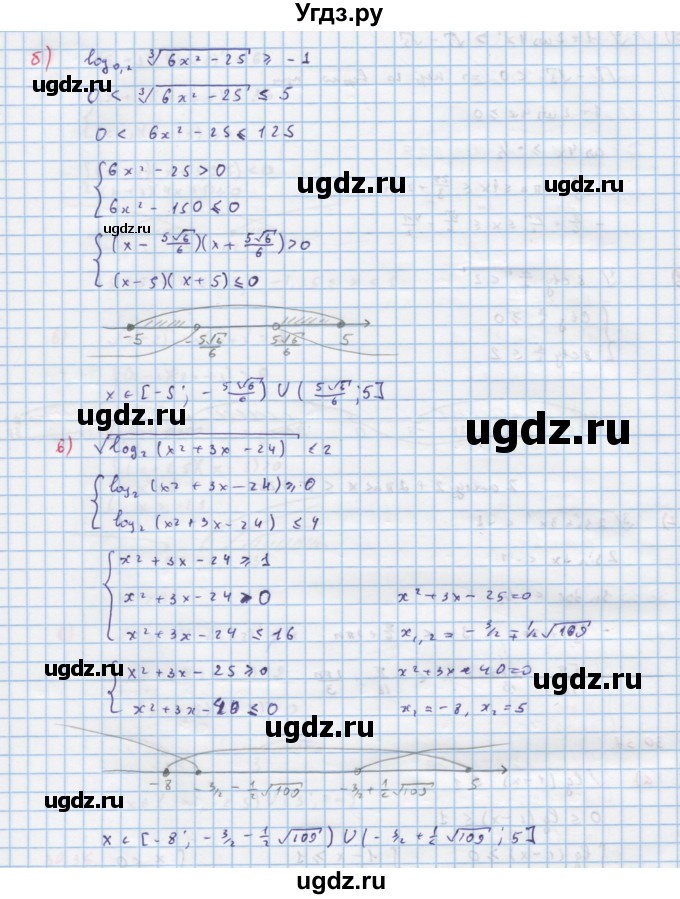 Угдз.ру
б) log₀,₂ ∛(6x² - 25) ≥ -1
0 < ∛(6x² - 25) ≤ 5
0 < 6x² - 25 ≤ 125
{ 6x² - 25 > 0
6x² - 150 ≤ 0
ugdz.ru
ugdz.ru
ugdz.ru
{ (x - 5√6/6)(x + 5√6/6) > 0
(x - 5)(x + 5) ≤ 0
ugdz.ru
-5 -5√6/6 5√6/6 5
x ∈ [-5; -5√6/6) ∪ (5√6/6; 5]
ugdz.ru
ugdz.ru
в) √(log₂ (x² + 3x - 24)) ≤ 2
{ log₂ (x² + 3x - 24) ≥ 0
log₂ (x² + 3x - 24) ≤ 4
{ x² + 3x - 24 ≥ 1
x² + 3x - 24 > 0 x² + 3x - 25 = 0
x² + 3x - 24 ≤ 16 x₁,₂ = - 3/2 ∓ 1/2√109
ugdz.ru
{ x² + 3x - 25 ≥ 0 x² + 3x - 40 = 0
ugdz.ru
x² + 3x - 40 ≤ 0 x₁ = -8, x₂ = 5
ugdz.ru
ugdz.ru
-8 -3/2 - 1/2√109 -3/2 + 1/2√109 5
x ∈ [-8; -3/2 - 1/2√109) ∪ (-3/2 + 1/2√109; 5]
ugdz.ru
ugdz.ru